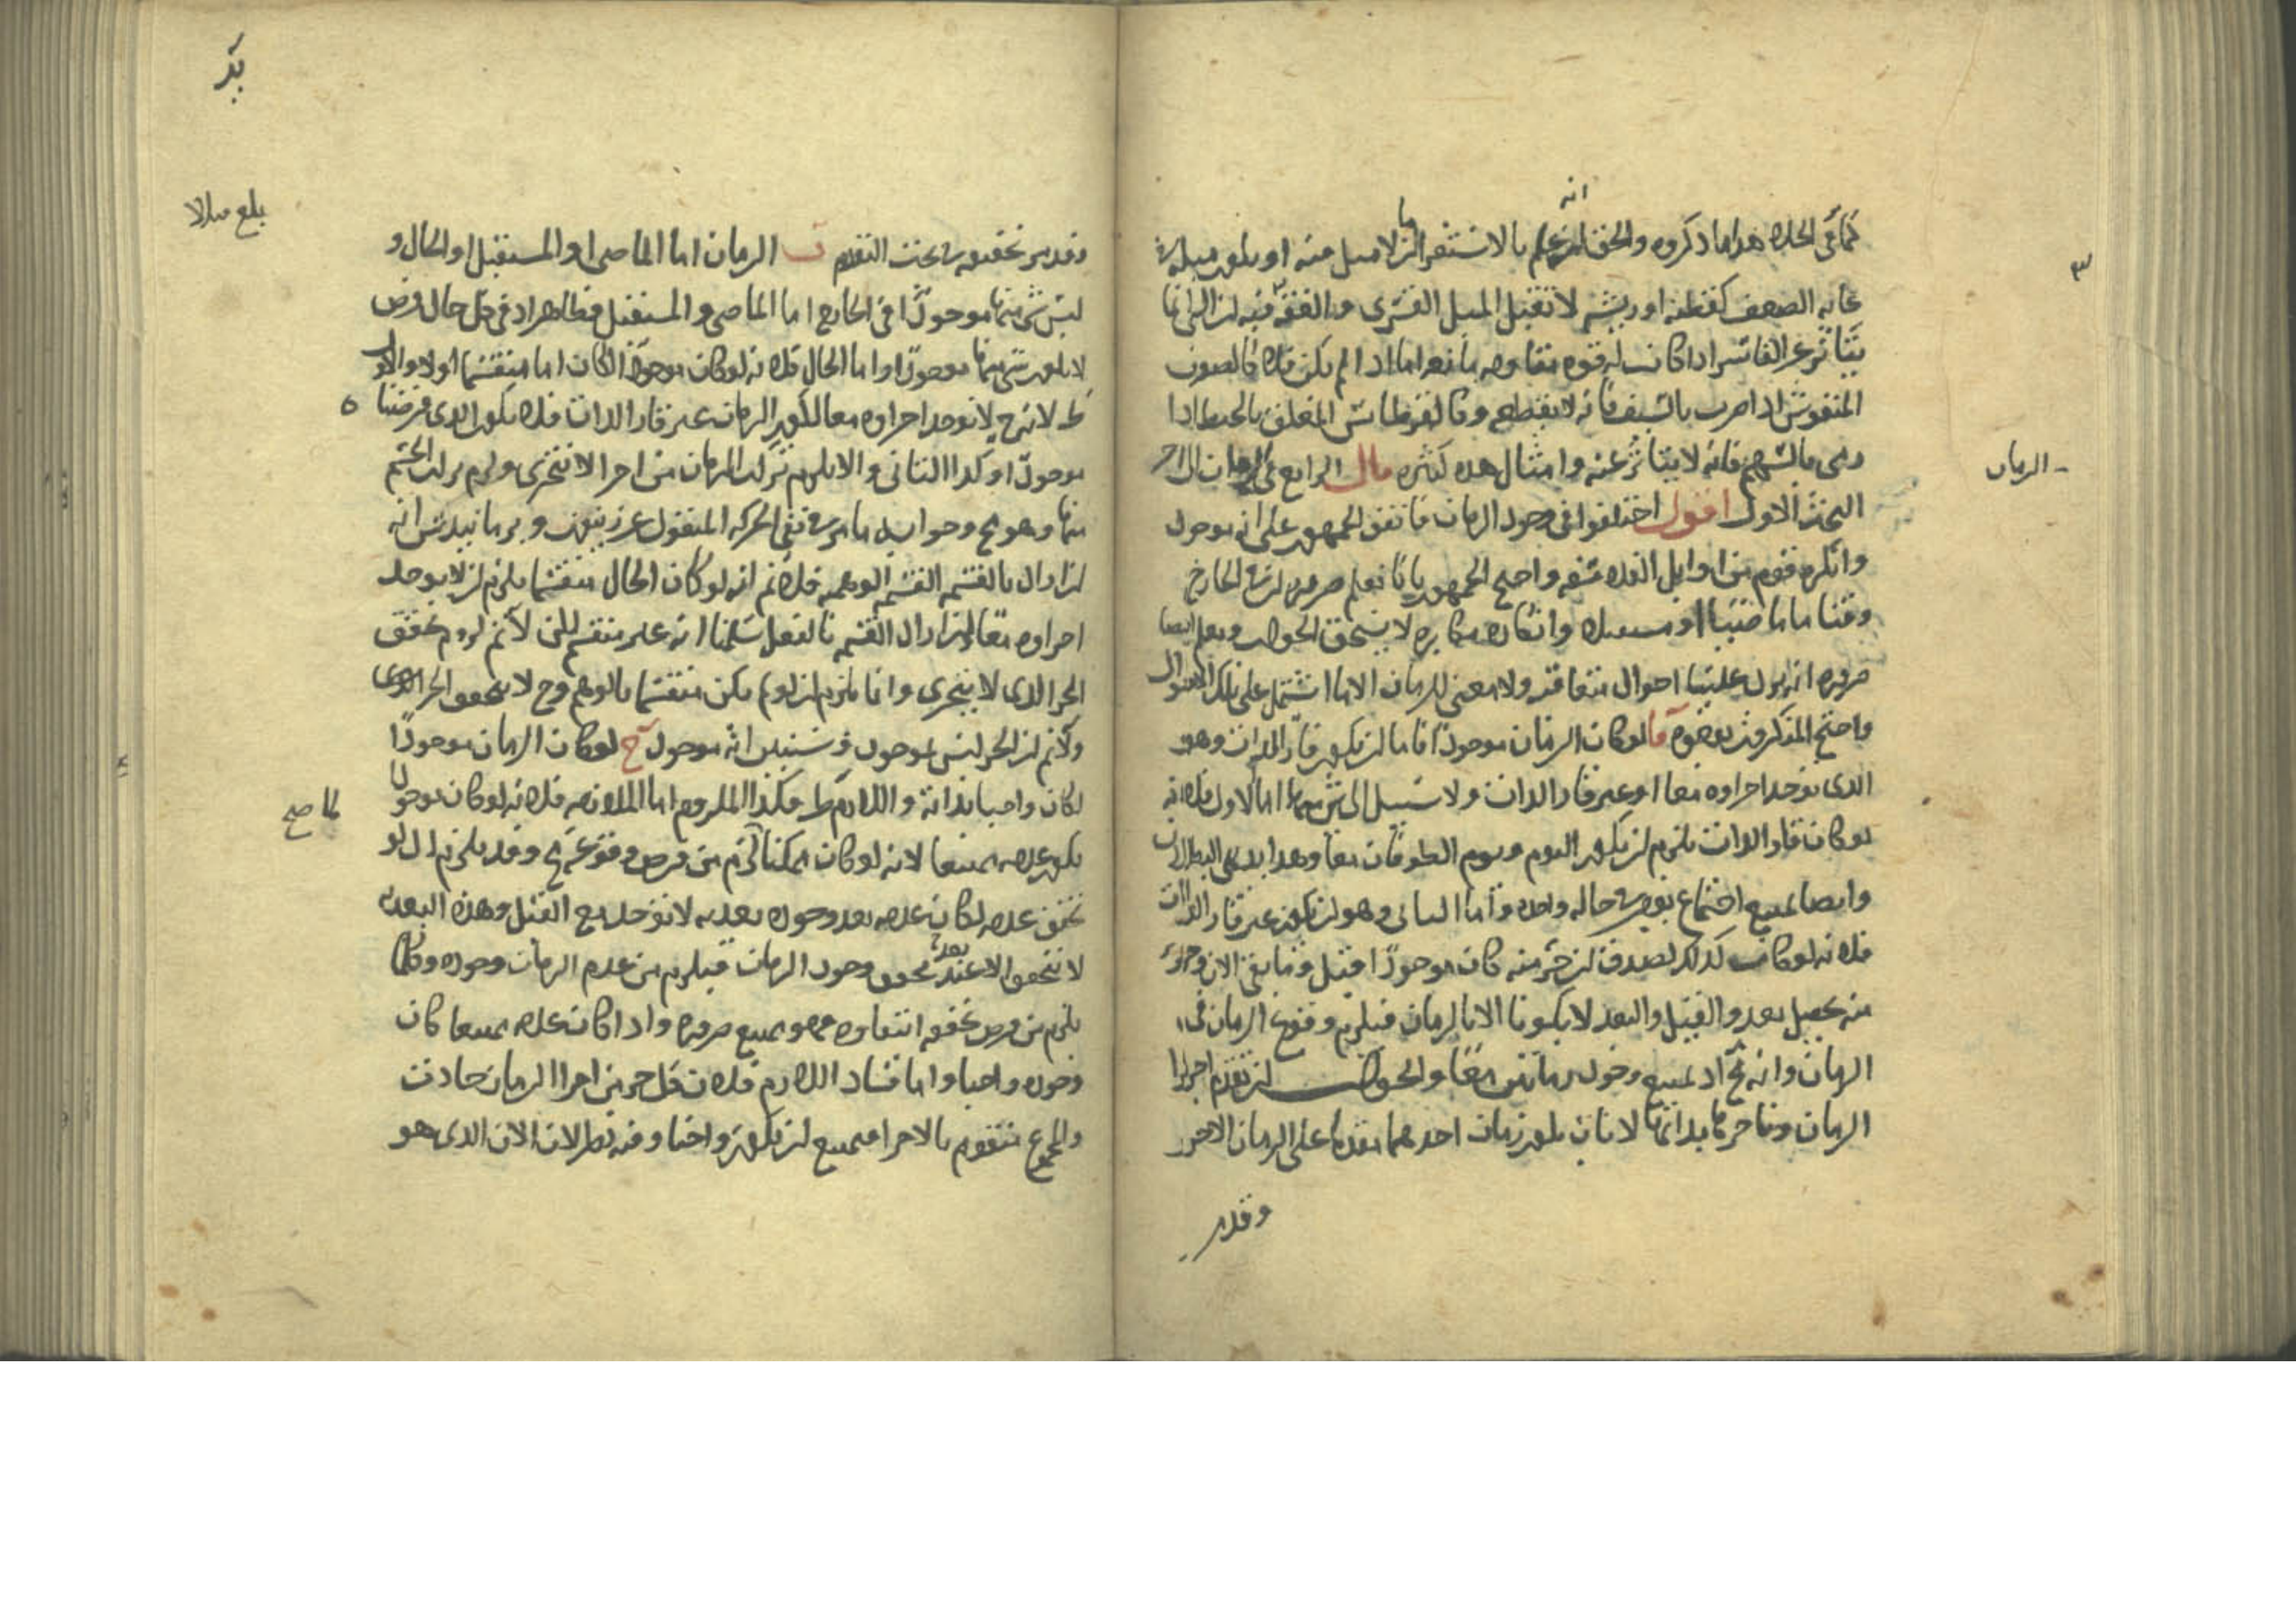 كما في الخلاء هذا ما ذكروه والحق انه علم بالاستقراء ان ما لا ميل فيه او يكون ميله في
غاية الضعف كقطنة او ريشة لا تقبل الميل القسري والفقه فيه ان الشي انما
يتاثر عن القاسر اذا كانت له قوة مقاومة مانعة اما اذا لم يكن فلا كالصوف
المنفوش اذا ضرب بالسيف فانه لا ينقطع وكالقرطاس المعلق بالخيط اذا
رمى بالسهم فانه لا يتاثر عنه وامثال هذه كثيره قال الرابع في الزمان الى اخر
البحث الاول اقول اختلفوا في وجود الزمان فاتفق الجمهور على انه موجود
وانكره قوم من اوايل الفلاسفه واحتج الجمهور بانا نعلم ضرورة ان في الخارج
وقتا ما ماضيا او مستقبلا وانكاره مكابره لا يستحق الجواب ونعلم ايضا
ضرورة انه يرد علينا احوال متعاقبة ولا معنى للزمان الا ما اشتمل على تلك الاحوال
واحتج المنكرون بوجوه ا لو كان الزمان موجودا فاما ان يكون قار الذات وهو
الذي توجد اجزاوه معا او غير قار الذات ولا سبيل الى شي منهما اما الاول فلانه
لو كان قار الذات يلزم ان يكون اليوم ويوم الطوفان معا وهذا بديهي البطلان
وايضا يمتنع اجتماع يومين في حالة واحدة واما الثاني وهو ان يكون غير قار الذات
فلانه لو كان كذلك لصدق ان جزء منه كان موجودا قبل وما بقي الان وجزء
منه يحصل بعد والقبل والبعد لا يكونا الا بالزمان فيلزم وقوع الزمان في
الزمان وانه مح اذ يمتنع وجود زمانين معا والجواب ان تقدم اجزاء
الزمان وتاخرها بذاتها لا بان يكون زمان احدهما مقدما على الزمان الاخر
وقد مر
الزمان
بلغ مقابلا
وقد مر تحقيقه في بحث التقدم ب الزمان اما الماضي او المستقبل او الحال و
ليس شي منها موجودا في الخارج اما الماضي والمستقبل فظاهر اذ في كل حال فرض
لا يكون شي منهما موجودا واما الحال فلانه لو كان موجودا لكان اما منقسما اولا والاول
ط لانه ح لا توجد اجزاوه معا لكون الزمان غير قار الذات فلا يكون الذي فرضنا
موجودا وكذا الثاني والا يلزم تركب الزمان من اجزا لا تتجزى ولزم تركب الجسم
منها وهو مح وجوابه ما مر في نفي الحركه المنقول عن زينون و برمانيدس انه
ان اراد بالقسمة القسمة الوهمية فلا نم انه لو كان الحال منقسما يلزم ان لا يوجد
اجزاوه معا وان اراد القسمة بالفعل سلمنا انه غير منقسم لكن لا نم لزوم تحقق
الجزا الذي لا يتجزى وانما يلزم ان لو لم يكن منقسما بالوهم وح لا يتحقق الجزا الذي
ولا نم ان الجز ليس بموجود وستبين انه موجود ج لو كان الزمان موجودا
لكان واجبا بذاته واللازم ط فكذا الملزوم اما الملازمه فلانه لو كان موجودا
يكون عدمه ممتنعا لانه لو كان ممكنا لما لزم من فرض وقوعه مح وقد يلزم اذ لو
تحقق عدمه لكان عدمه بعد وجوده بعدية لا توجد مع القبل وهذه البعديه
لا تتحقق الا عند تحقق وجود الزمان فيلزم من عدم الزمان وجوده وكلما
يلزم من فرض تحققه انتفاوه فهو ممتنع ضرورة واذا كان عدمه ممتنعا كان
وجوده واجبا واما فساد اللازم فلان كل جزء من اجزا الزمان حادث
والمجموع متقوم بالاجزا فيمتنع ان يكون واجبا وفيه نظر لان الان الذي هو